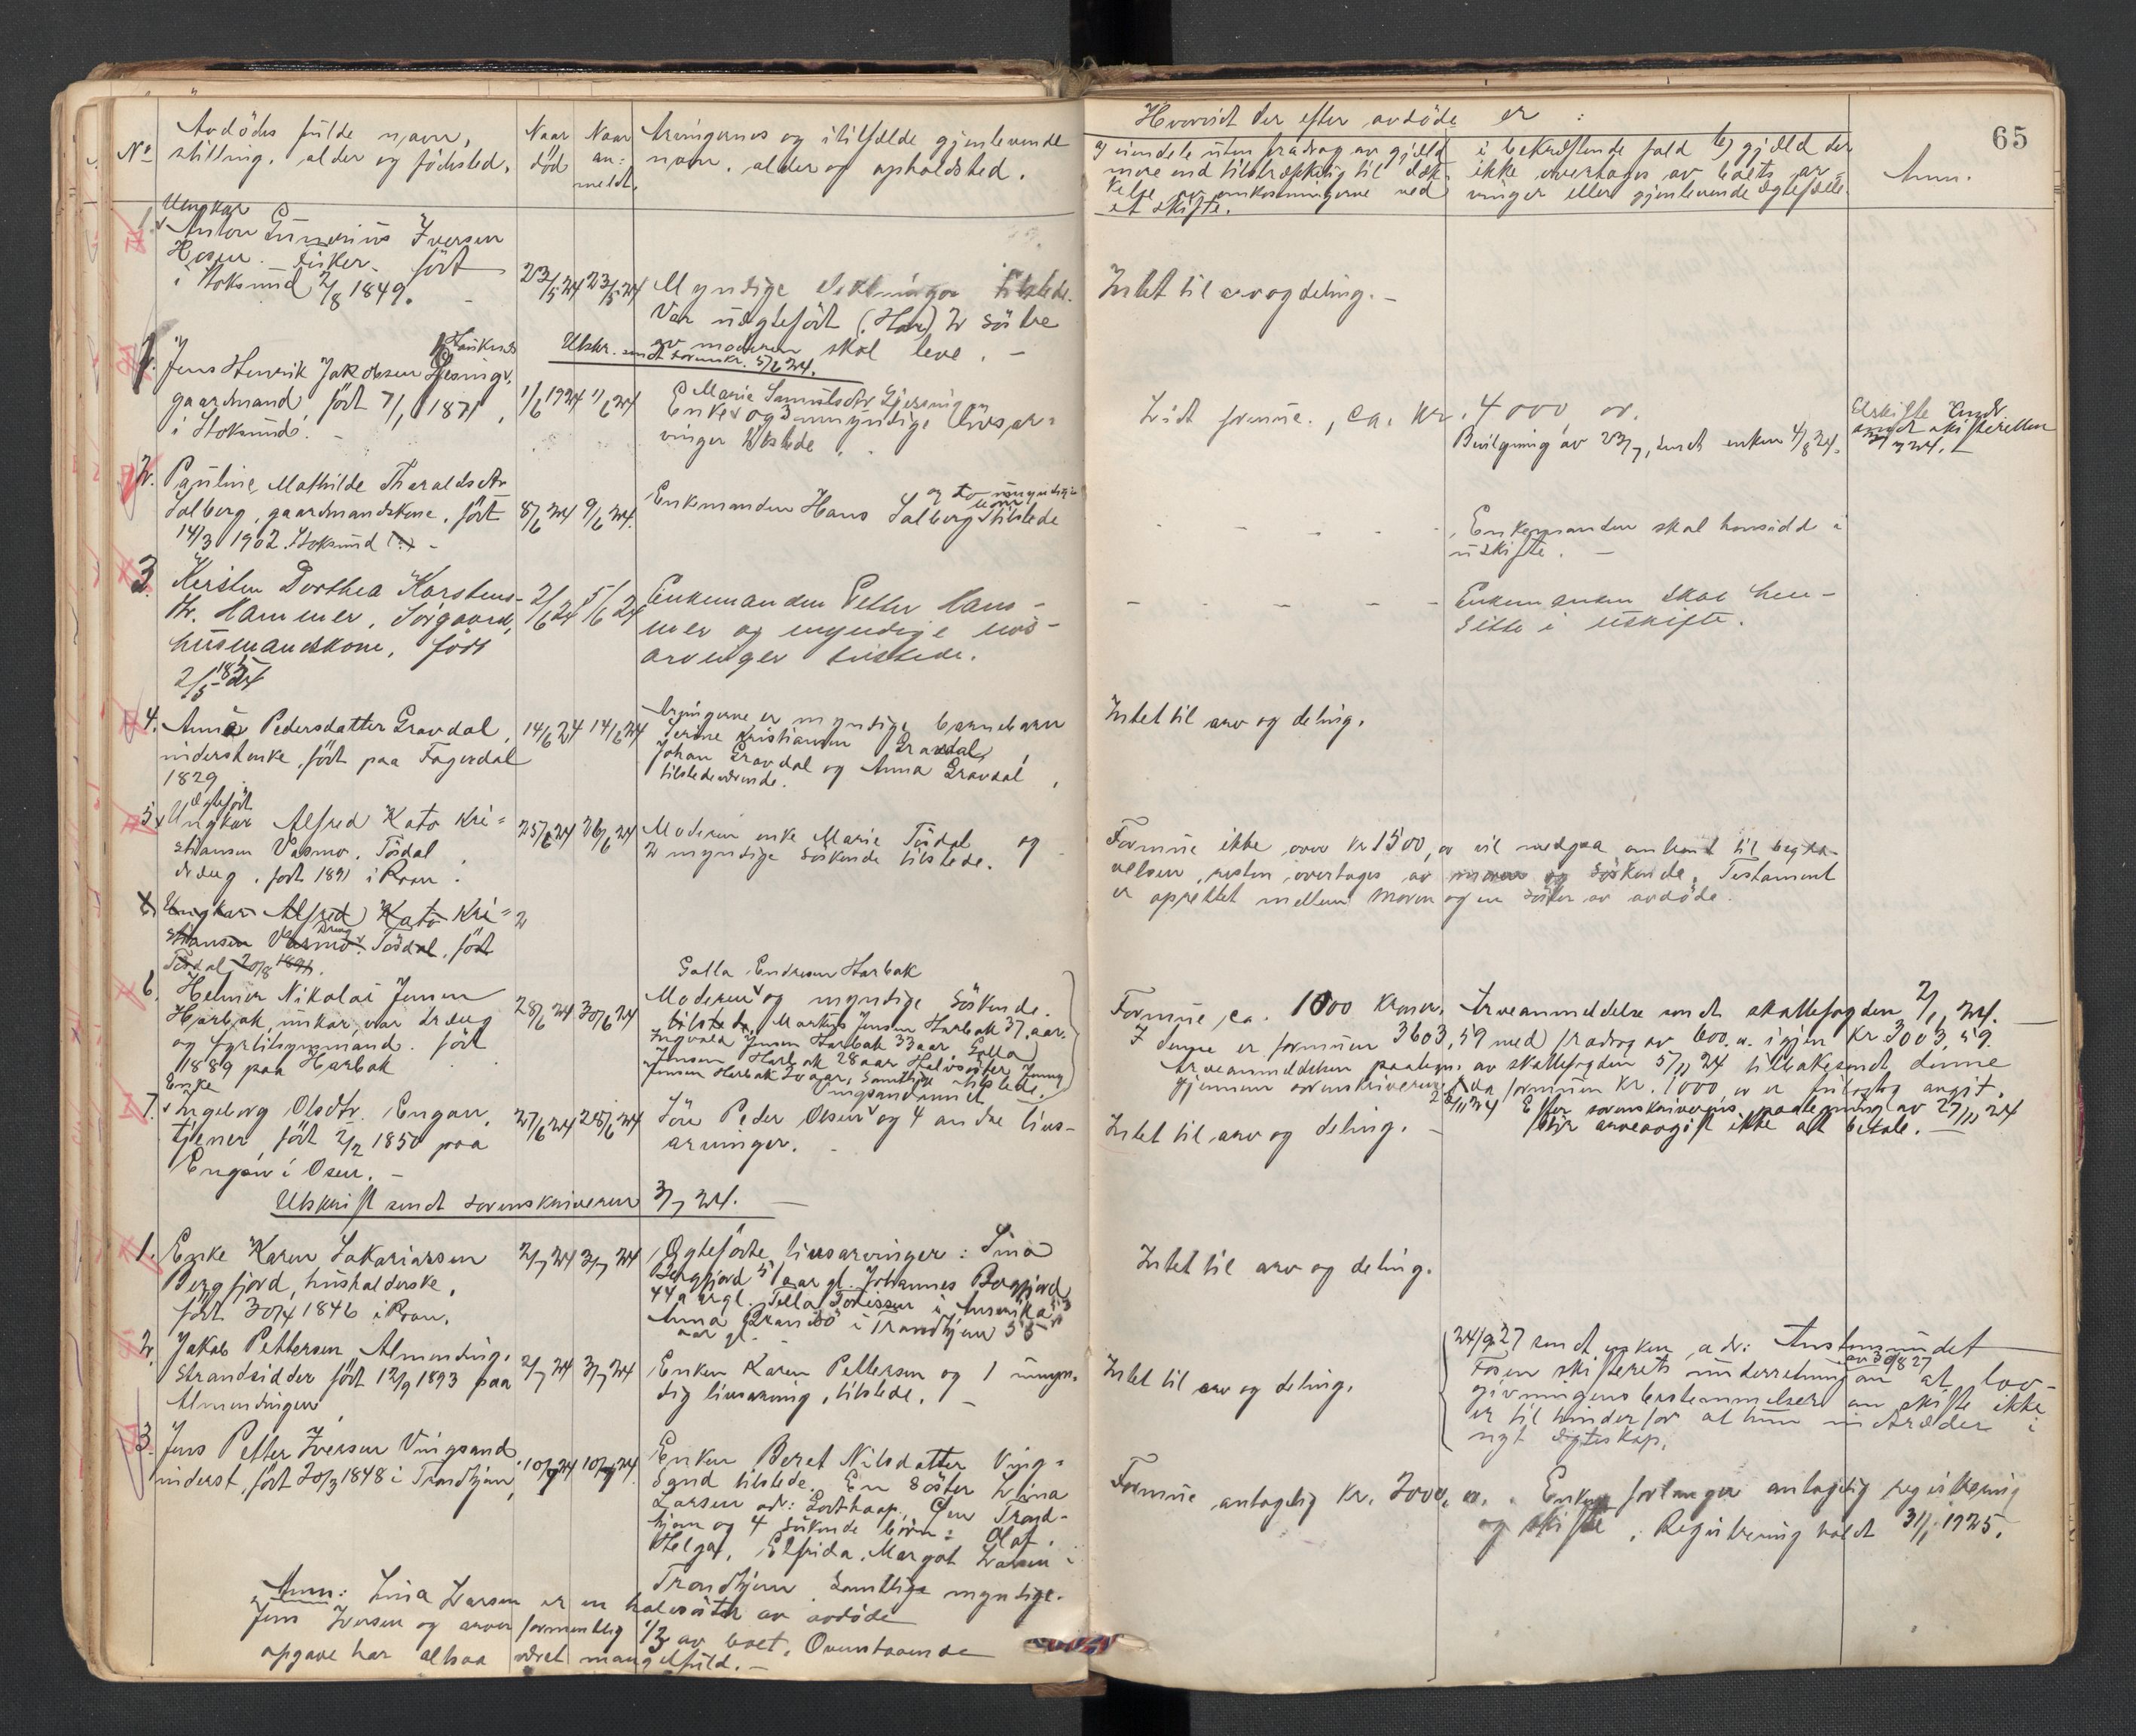 65
No
Avdødes fulde navn,
stilling, alder og fødested.
Naar
død
Naar
an-
meldt.
Arvingernes og i tilfælde gjenlevende
navn, alder og opholdsted.
Hvorvidt der efter avdøde er :
a) eiendele uten fradrag av gjæld
mere end tilstrækkelig til dæk-
kelse av omkostningerne ved
et skifte.
i bekræftende fald b) gjæld der
ikke overtages av boets ar-
vinger eller gjenlevende egtefælle
Anm.
1. Ungkar
Anton Gunerius Iversen
Hosen. fisker. født
i Stoksund 2/8 1849.
23/5 24 23/5 24
Myndige slektninger tilstede.
Var uegtefødt (Har) 2 søstre
av moderen skal leve. -
Intet til arv og deling. -
Utskr. sendt sorenskr. 5/6 24.
1. Jens Henrik Jakobsen
gaardmand født 7/1 1871
i Stoksund. -
1/6 1924 1/6 24
Marie
Enke og 3 umyndige livsar-
vinger tilstede.
Lidt formue, ca. kr. 4000 .
Bevilgning av 23/7, sendt enken 4/8 24.
2. Pauline Mathilde Tharaldsdtr
Solberg, gaardmandskone, født
14/3 1902. Stoksund
8/6 24 9/6 24.
Enkemanden Hans Solberg tilstede
og to umyndige
- - - - Enkemanden skal hensidde i
uskifte. -
3. Kirsten Dorthea Karstens-
dtr. Hammer, Sørgaard,
husmandskone, født
2/5
2/6 24 5/6 24
Enkemanden Petter Ham-
mer og myndige livs-
arvinger tilstede.
- - - - - Enkemanden skal hen-
sitte i uskifte.
4. Anna Pedersdatter Gravdal,
inderstenke, født paa Fagerdal
1829
14/6 24 14/6 24
Arvingerne er myndige barnebarn
Serine Kristiansen Gravdal,
Johan Gravdal og Anna Gravdal
tilstedeværende.
Intet til arv og deling.
5. Egtefødt
Ungkar Alfred Kato Kri-
stiansen Vasmo. Tødal
dræng. født 1891 i Roan.
25/6 24 26/6 24
Moderen enke Marie Tødal og
2 myndige søskende tilstede.
Formue ikke over kr 1500, vil medgaa omtrent til begra-
velsen, resten overtages av moren og søskende. Testament
er oprettet mellem moren og en søster av avdøde.
6. Ungkar Alfred Kato Kri-
stiansen Vasmo. Dreng Tødal, født
Tødal 20/8 1891.
6. Helmer Nikolai Jensen
Harbak, unkar, var dræng
og fyrbilsynsmand. født
1889 paa Harbak
28/6 24 30/6 24
Galla Endresen Harbak
Moderen og myndige søskende.
tilstede. Markus Jensen Harbak 37 aar.
Ingvald Jensen Harbak 33 aar Galla
Jensen Harbak 28 aar Halvsøster Jenny
Jensen Harbak 20 aar, samtlige tilstede.
Vingsand
Formue, ca. 1000 kroner. Arveanmeldelse sendt skattefogden 2/1, 24. -
I denne er formuen 3603,59 med fradrag av 600. igjen kr 3003,59.
Arveanmeldelsen paategn. av skattefogden 5/11 24 tilbakesendt denne
gjennem sorenskriveren da formuen kr. 1000 er feilagtig angit.
Efter sorenskriverens paategning av 27/11 24
blir arveavgift ikke at betale. -
7. Enke
Ingeborg Olsdtr. Engan,
tjener født 2/2 1850 paa
Engan i Osen. -
27/6 24 28/6 24
Søn Peder Olsen og 4 andre livs-
arvinger. -
Intet til arv og deling. -
Utskrift sendt sorenskriveren 3/7 24. -
1. Enke Karen Sakariassen
Bergfjord, husholderske,
født 30/4 1846 i Roan.
2/7 24 3/7 24
Egtefødte livsarvinger: Sina
Bergfjord 51 aar gl. Johannes Bergfjord
44 aar gl. Tella Tobissen i Amerika 53
Anna i Trondhjem 55
aar gl.
Intet til arv og deling.
2. Jakob Pettersen Almending.
Strandsidder født 12/9 1893 paa
Almendingen
2/7 24 3/7 24
Enken Karen Pettersen og 1 umyn-
dig livsarving, tilstede. -
Intet til arv og deling.
24/9 27 sendt enken adr:
Fosen skifterets underretning av 3/9 27 om at lov-
givningens bestemmelser om skifte ikke
er til hinder for at hun indtræder i
nyt egteskap.
3. Jens Petter Iversen Vingsand
inderst, født 20/3 1848 i Trondhjem,
10/7 24 10/7 24
Enken Beret Nilsdatter Ving-
sand tilstede. En søster Lina
Larsen adr: Godthaap, Trond-
hjem og 4 søskende børn: Olaf,
Helga, Elfrida, Margot Larsen i
Trondhjem. Samtlige myndige.
Formue antagelig kr. 2000,00. Enken forlanger antagelig registrering
og skifte. Registrering holdt 31/1 1925.
Anm: Lina Larsen er en halvsøster av avdøde
Jens Iversen og arver formentlig 1/3 av boet. Ovenstaaende
opgave har altsaa været mangelfuld. -